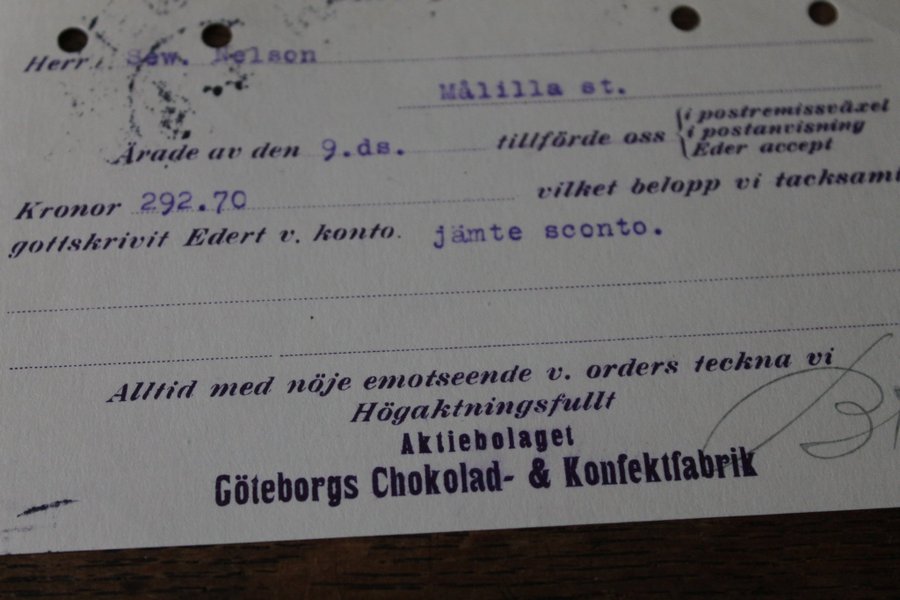 Herr Sew. Nelson
Målilla st.
i postremissväxel
Ärade av den 9.ds. tillförde oss i postanvisning
Eder accept
Kronor 292.70 vilket belopp vi tacksamt
gottskrivit Edert v. konto. jämte sconto.
Alltid med nöje emotseende v. orders teckna vi
Högaktningsfullt
Aktiebolaget
Göteborgs Chokolad- & Konfektfabrik